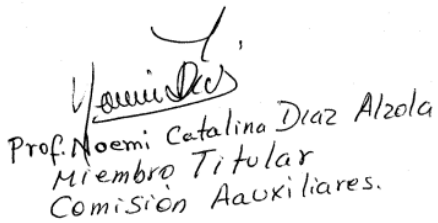 Prof. Noemi Catalina Diaz Alzola
Miembro Titular
Comisión Aauxiliares.